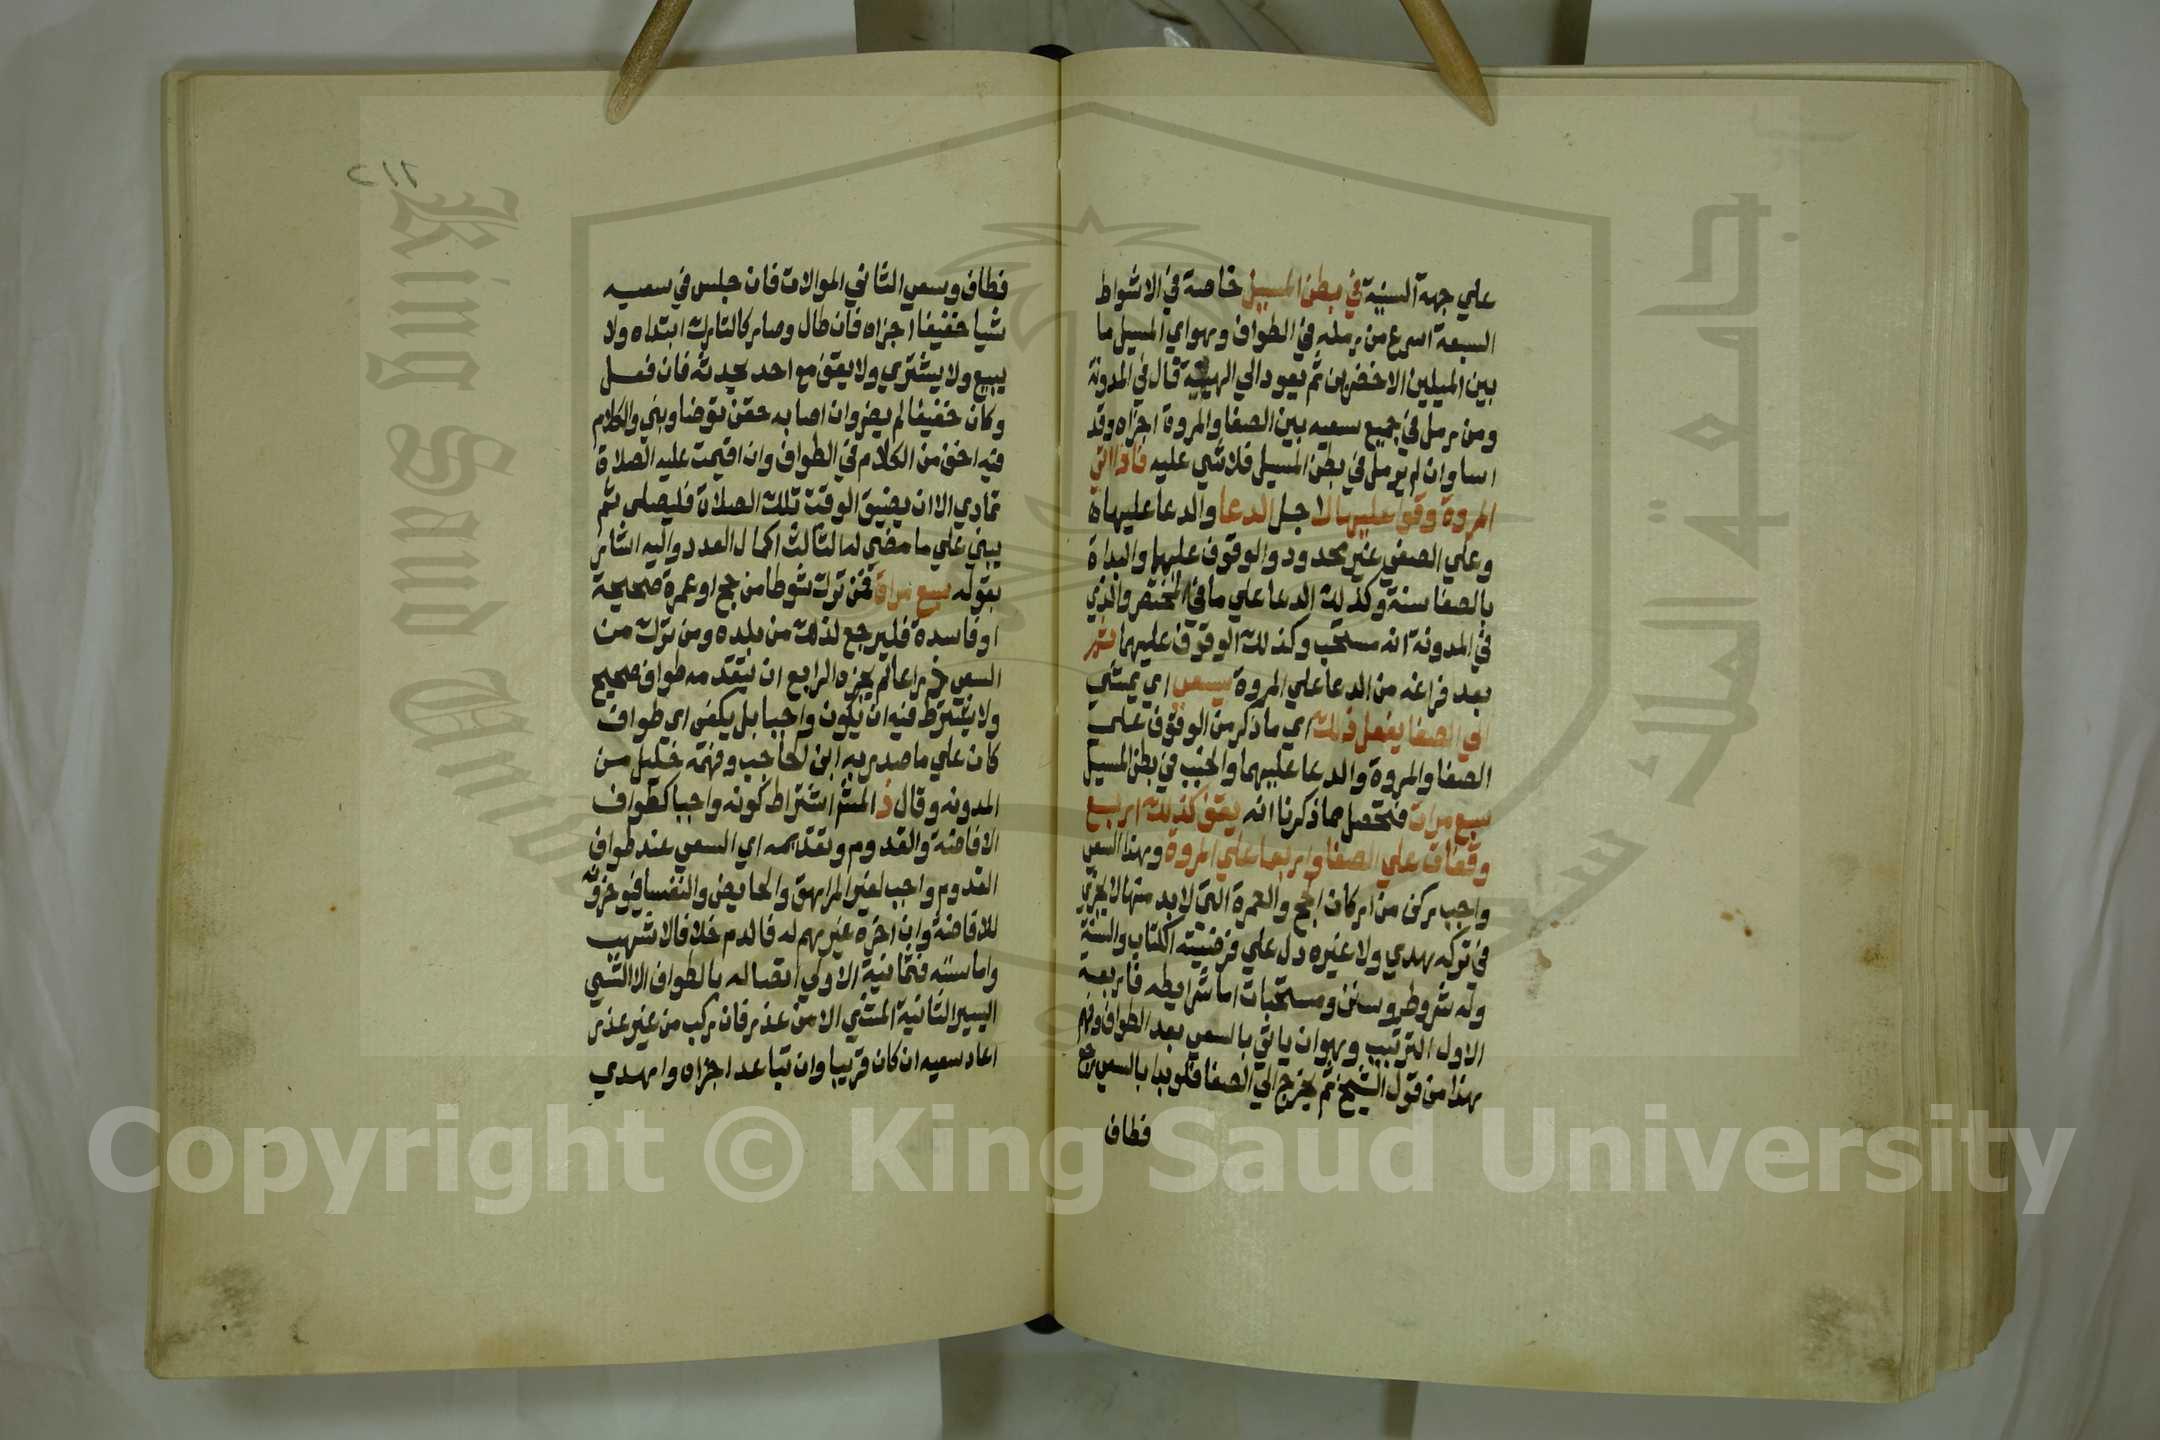 علي جهة السنية في بطن المسيل خاصة في الاشواط
السبعة اسرع من رمله في الطواف وهواي المسيل ما
بين الميلين الاخضرين ثم يعود الي الهيبة قال في المدونة
ومن رمل في جميع سعيه بين الصفا والمروة اجزاه وقد
اسا وان لم يرمل في بطن المسيل فلا شي عليه فاذا اتي
المروة وقف عليها لا جل الدعا والدعا عليها
وعلي الصفي غير محدود والوقوف عليها والبداة
بالصفا سنة وكذلك الدعا علي ما في المختصر والذي
في المدونة انه مستحب وكذلك الوقوف عليهما ثم
بعد فراغه من الدعا علي المروة يسعي اي يمشي
الي الصفا يفعل ذلك اي ما ذكر من الوقوف علي
الصفا والمروة والدعا عليهما والخبب في بطن المسيل
سبع مرات فتحصل مما ذكرنا انه يقف كذلك اربع
وقفات علي الصفا واربعا علي المروة وهذا السعي
واجب ركن من اركان الحج والعمرة التي لا بد منها لا يجزي
في تركه هدي ولا غيره دل علي فرضيته الكتاب والسنة
وله شروط وسنن ومستحبات اما شرايطه فاربعة
الاول الترتيب وهو ان ياتي بالسعي بعد الطواف وفهم
هذا من قول الشيخ ثم يخرج الي الصفا فلو بدا بالسعي رجع
فطاف
٢١١
فطاف وسعي الثاني الموالات فان جلس في سعيه
شيا خفيفا اجزاه فان طال وصار كالتارك ابتداه ولا
يبيع ولا يشتري ولا يقف مع احد يحدثه فان فعل
وكان خفيفا لم يضر وان اصابه حقن توضا وبني والكلام
فيه اخف من الكلام في الطواف وان اقيمت عليه الصلاة
تمادي الا ان يضيق الوقت تلك الصلاة فليصلي ثم
يبني علي ما مضي له الثالث اكمال العدد واليه اشار
بقوله سبع مرات فمن ترك شوطا من حج او عمرة صحيحة
او فاسدة فليرجع لذلك من بلده ومن ترك من
السعي ذراعا لم يجزه الرابع ان يتقدمه طواف صحيح
ولا يشترط فيه ان يكون واجبا بل يكفي اي طواف
كان علي ما صدر به ابن الحاجب وفهمه خليل من
المدونه وقال اشتراط كونه واجبا كطواف
الافاضة والقدوم وتقديمه اي السعي عند طواف
القدوم واجب لغير المراهق والحايض والنفسا فيوخرونه
للافاضة وان اخره غيرهم له فالدم خلافا لاشهب
واما سننه فثمانية الاولي اتصاله بالطواف الا الشي
اليسير الثانية المشي الا من عذر فان ركب من غير عذر
اعاد سعيه ان كان قريبا وان تباعد اجزاه واهدي
جامعة الملك سعود
King Saud University
Copyright © King Saud University